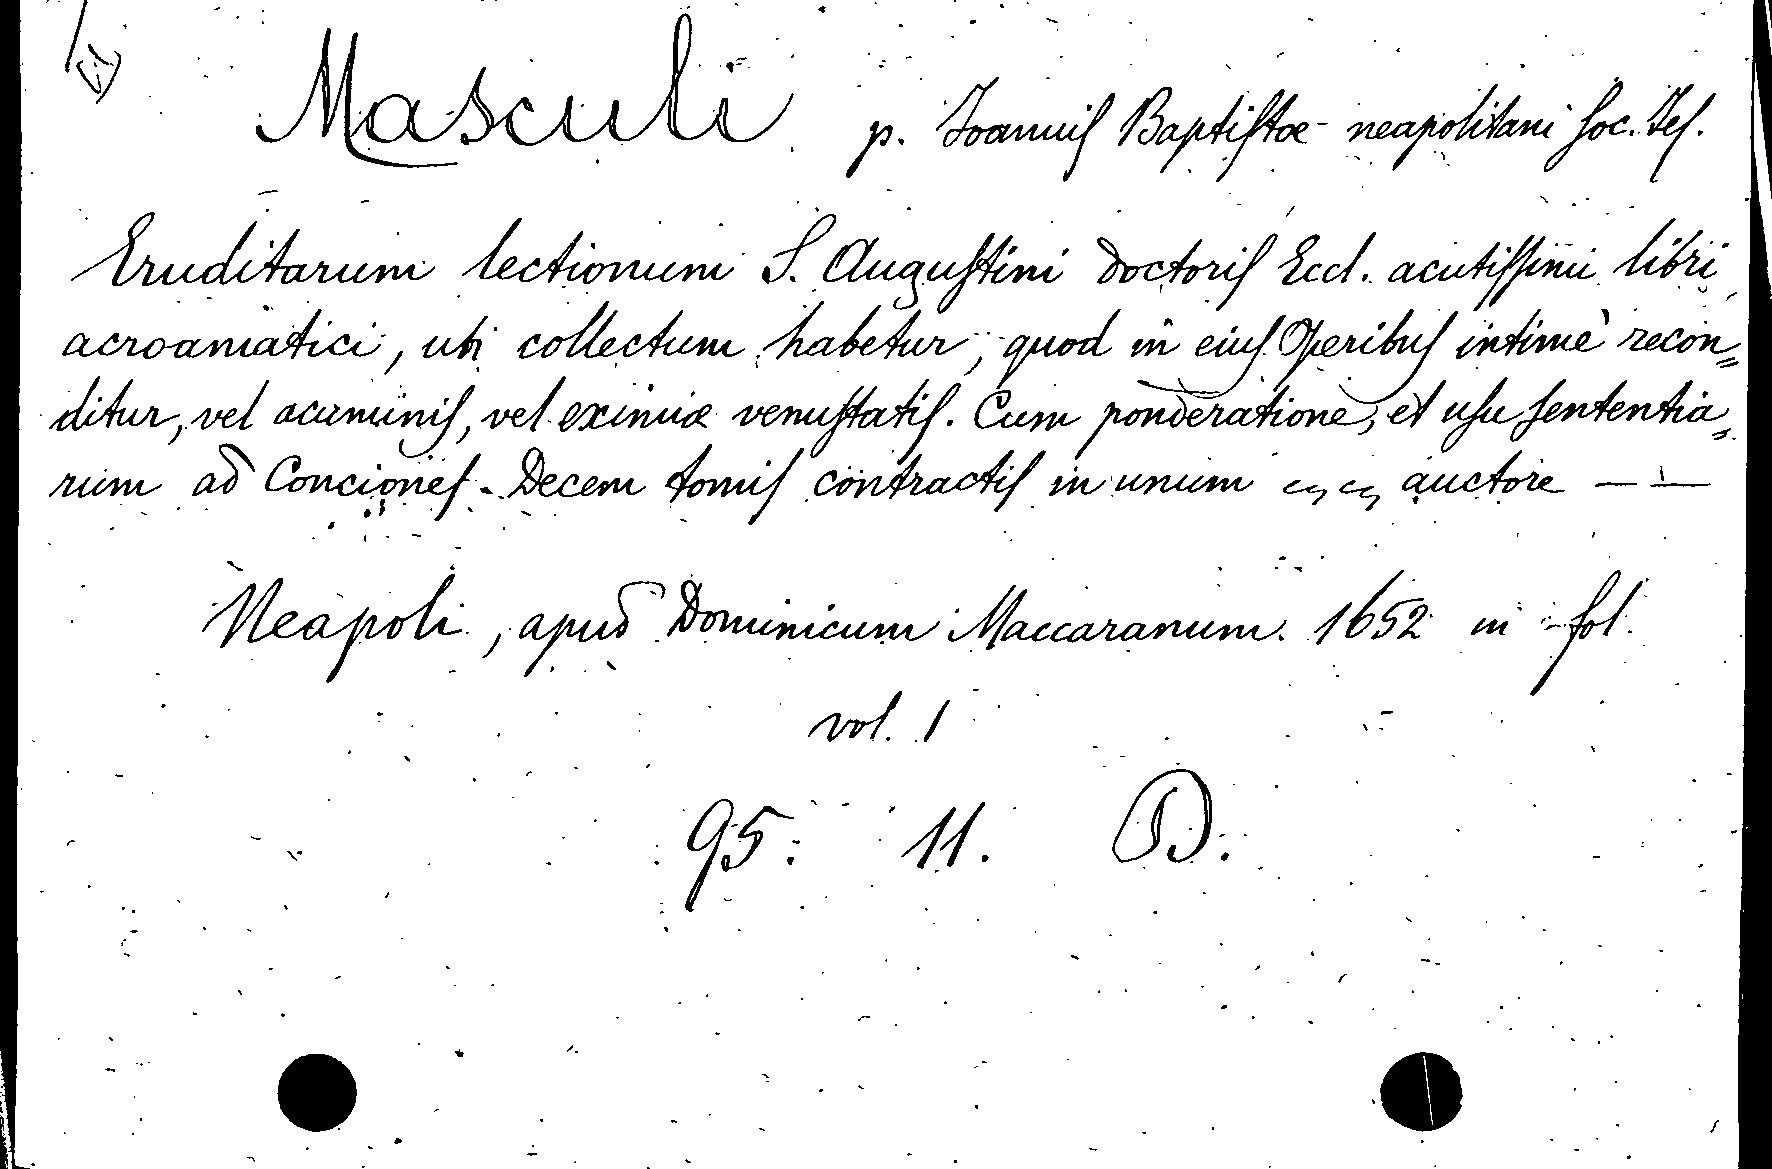 Masculi p. Ioannis Baptistae neapolitani Soc. Ies.
Eruditarum lectionum S. Augustini doctoris Eccl. acutissimi libri
acroamatici, ubi collectum habetur, quod in eius Operibus intimè recon=
ditur, vel acuminis, vel eximiae venustatis. Cum ponderatione, et usu sententia=
rum ad Conciones. Decem tomis contractis in unum auctore — —
Neapoli, apud Dominicum Maccaranum. 1652 in fol.
vol. 1
95. 11. D.